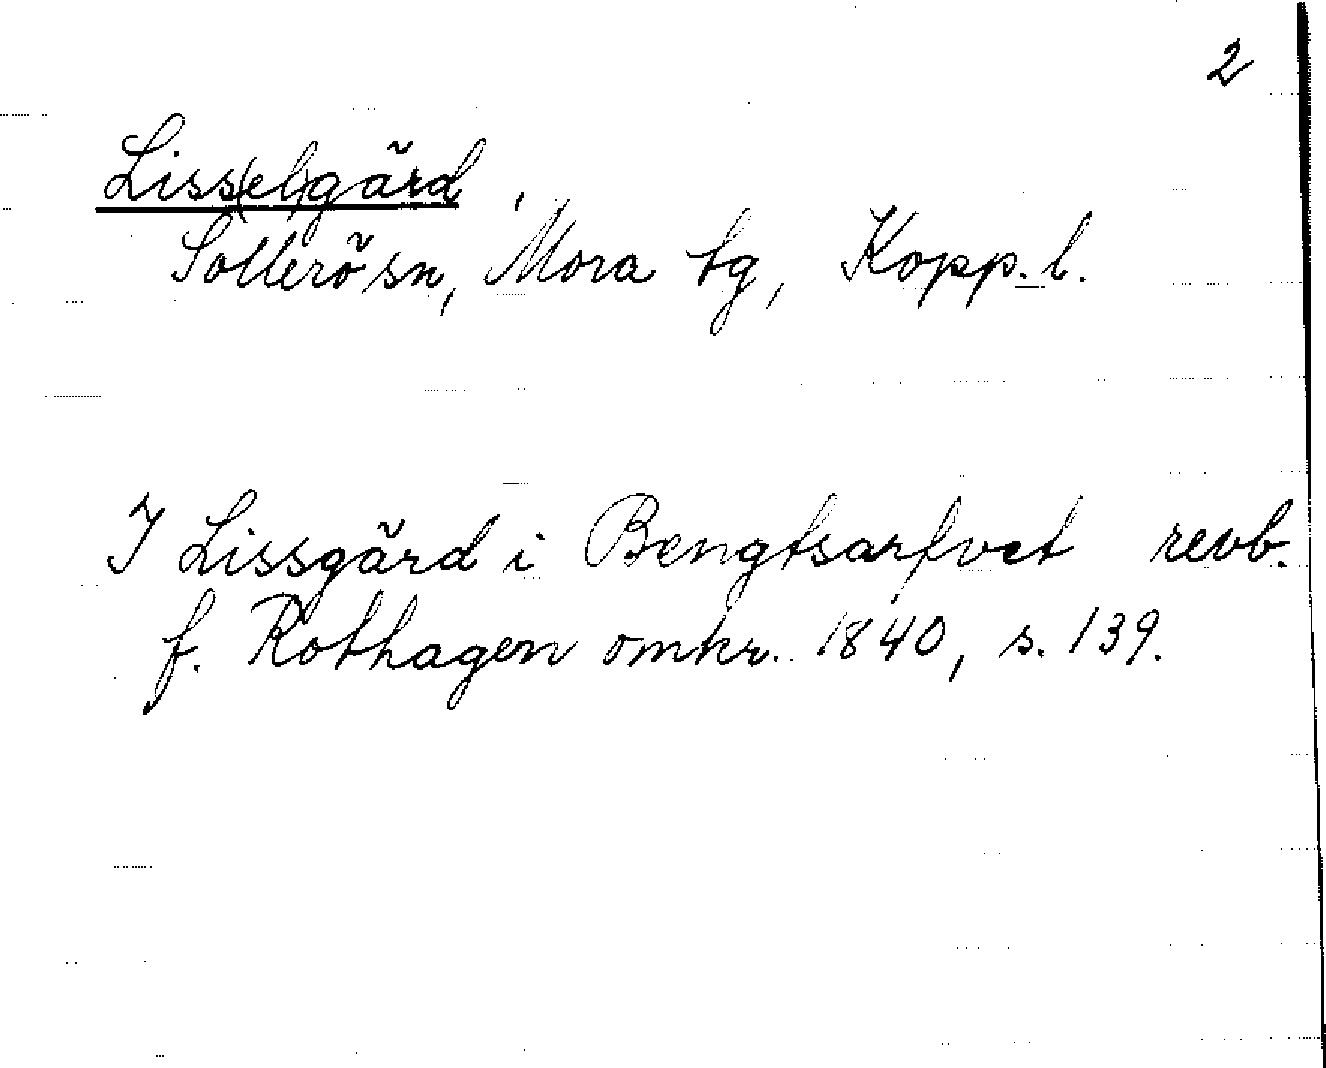 2
Liss(el)gård
Sollerö sn, Mora tg, Kopp. l.
I Lissgård i Bengtsarfvet revb.
f. Rothagen omkr. 1840, s. 139.